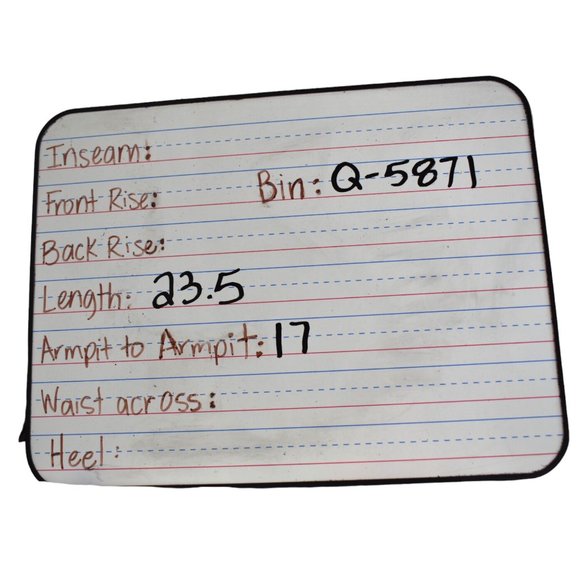 Inseam:
Front Rise:
Bin: Q-5871
Back Rise:
Length: 23.5
Armpit to Armpit: 17
Waist across:
Heel: